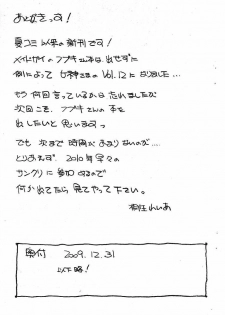 あとがきっす!
夏コミ以来の新刊です!
メイドガイのフブキさん本は出せずに
例によって女神さまのVol.12になりました…
もう何回言っているかは忘れましたが
次回こそフブキさんの本を
出したいと思いますっ
でも次まで時間があまりないので…
とりあえず、2010年早々の
サンクリに参加するので
何か出てたら見てやって下さい。
れいあ
奥付 2009.12.31
以下略!